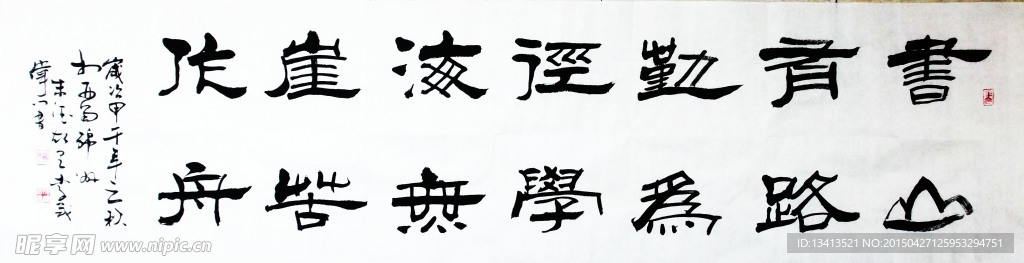 書山
有路
勤為
徑學
海無
崖苦
作舟
歲次甲午年之秋
昵享网 www.nipic.cn
ID:13413521 NO:20150427125953294751